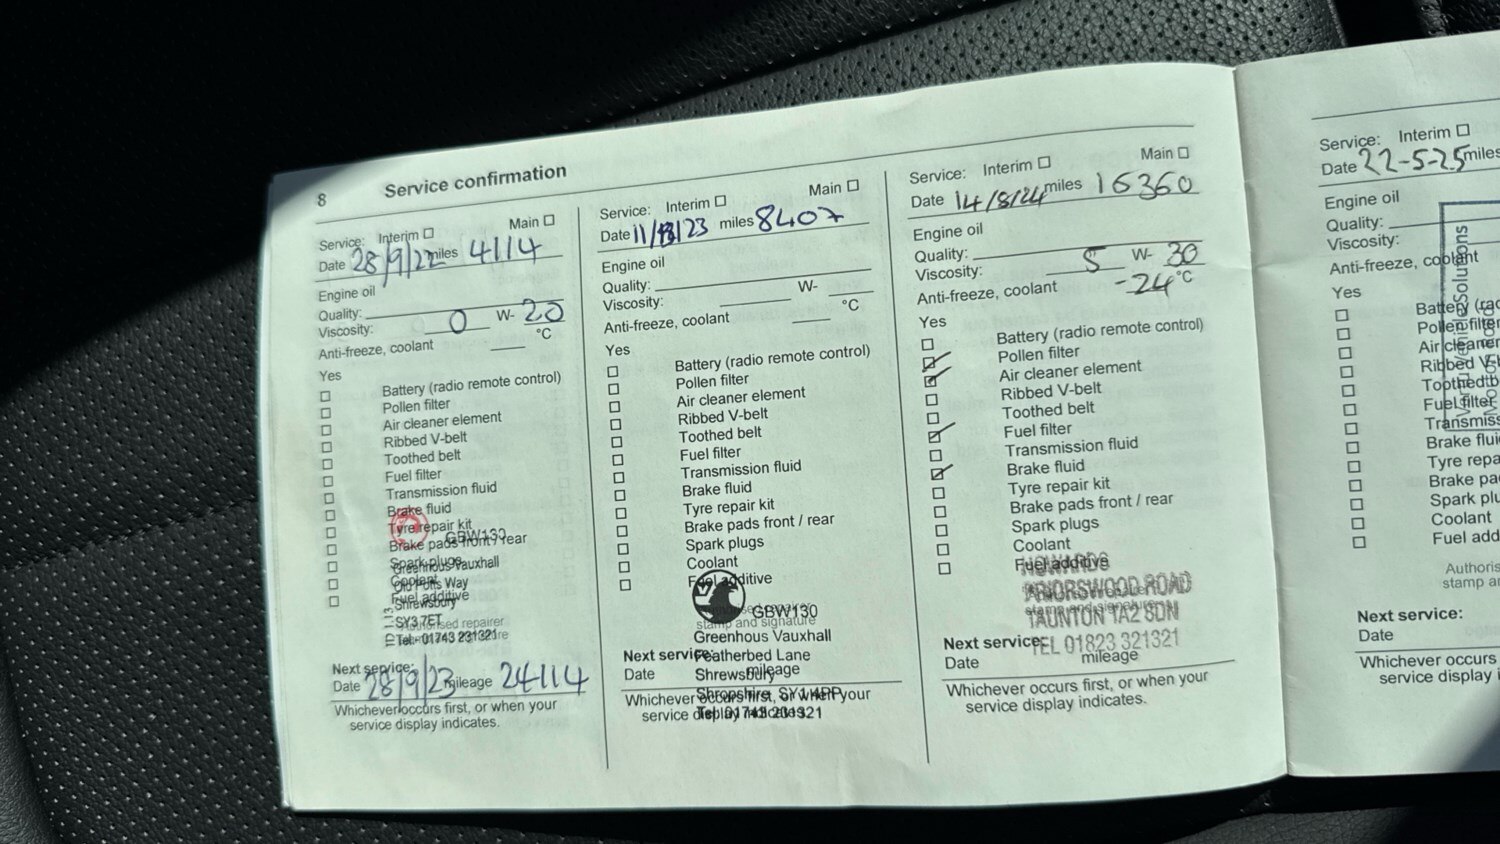 8 Service confirmation
Service: Interim Main
Date 28/9/22 miles 4114
Engine oil
Quality:
Viscosity: 0 W- 20
Anti-freeze, coolant °C
Yes
Battery (radio remote control)
Pollen filter
Air cleaner element
Ribbed V-belt
Toothed belt
Fuel filter
Transmission fluid
Brake fluid
Tyre repair kit
Brake pads front / rear
GBW130
Spark plugs
Greenhous Vauxhall
Coolant
Old Potts Way
Fuel additive
Shrewsbury
SY3 7ET
Authorised repairer
Tel: 01743 231321
Next service:
Date 28/9/23 mileage 24114
Whichever occurs first, or when your
service display indicates.
Service: Interim Main
Date 11/ /23 miles 8407
Engine oil
Quality:
Viscosity: W-
Anti-freeze, coolant °C
Yes
Battery (radio remote control)
Pollen filter
Air cleaner element
Ribbed V-belt
Toothed belt
Fuel filter
Transmission fluid
Brake fluid
Tyre repair kit
Brake pads front / rear
Spark plugs
Coolant
Fuel additive
GBW130
stamp and signature
Greenhous Vauxhall
Next service:
Featherbed Lane
Date mileage
Shrewsbury
Shropshire SY1 4PP
Whichever occurs first, or when your
service display indicates.
Tel: 01743 231321
Service: Interim Main
Date 14/8/24 miles 16360
Engine oil
Quality:
Viscosity: 5 W- 30
Anti-freeze, coolant -24 °C
Yes
Battery (radio remote control)
Pollen filter
Air cleaner element
Ribbed V-belt
Toothed belt
Fuel filter
Transmission fluid
Brake fluid
Tyre repair kit
Brake pads front / rear
Spark plugs
Coolant
Fuel additive
HOWARDS
PRIORSWOOD ROAD
stamp and signature
TAUNTON TA2 8DN
Next service:
TEL 01823 321321
Date mileage
Whichever occurs first, or when your
service display indicates.
Service: Interim
Date 22-5-25 miles
Engine oil
Quality:
Viscosity:
Anti-freeze, coolant
Yes
Battery (rad
Pollen filter
Air cleaner
Ribbed V-b
Toothed b
Fuel filter
Transmiss
Brake flui
Tyre repa
Brake pa
Spark plu
Coolant
Fuel add
Solutions
Authoris
stamp a
Next service:
Date
Whichever occurs
service display i